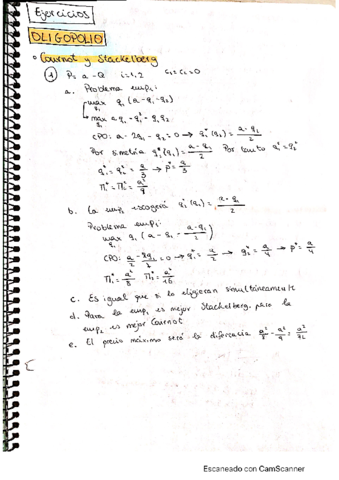 Ejercicios
OLIGOPOLIO
Cournot y Stackelberg
1 P = a - Q i = 1, 2 c₁ = c₂ = 0
a. Problema emp₁:
max q₁ (a - q₁ - q₂)
max a q₁ - q₁² - q₁q₂
CPO: a - 2q₁ - q₂ = 0 → q₁*(q₂) = (a - q₂)/2
Por simetría q₂*(q₁) = (a - q₁)/2 Por tanto q₁* = q₂*
q₁* = q₂* = a/3 → p* = a/3
Π₁* = Π₂* = a²/9
b. La emp₂ escogerá q₂*(q₁) = (a - q₁)/2
Problema emp₁:
max q₁ (a - q₁ - (a - q₁)/2)
CPO: a/2 - 2q₁/2 = 0 → q₁* = a/2 → q₂* = a/4 → p* = a/4
Π₁* = a²/8 Π₂* = a²/16
c. Es igual que si lo eligieran simultáneamente
d. Para la emp₁ es mejor Stackelberg, pero la
emp₂ es mejor Cournot
e. El precio máximo será la diferencia a²/8 - a²/9 = a²/72
Escaneado con CamScanner